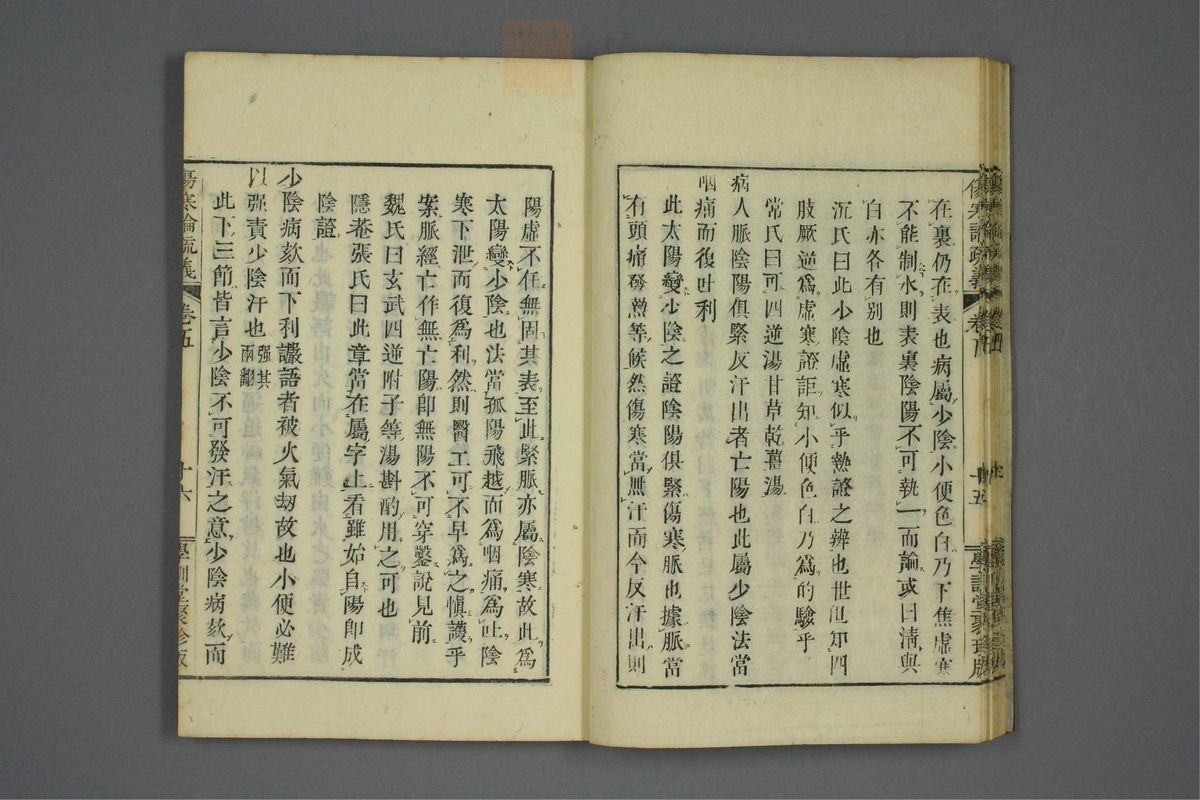 在裏仍在表也病屬少陰小便色白乃下焦虛寒
不能制水則表裏陰陽不可執一而論或曰清與
白亦各有別也
沉氏曰此小陰虛寒似乎熱證之辨也世但知四
肢厥逆爲虛寒證詎知小便色白乃爲的驗乎
常氏曰可四逆湯甘草乾薑湯
病人脈陰陽俱緊反汗出者亡陽也此屬少陰法當
咽痛而復吐利
此太陽變少陰之證陰陽俱緊傷寒脈也據脈當
有頭痛發熱等候然傷寒當無汗而今反汗出則
陽虛不任無固其表至此緊脈亦屬陰寒故此爲
太陽變少陰也法當孤陽飛越而爲咽痛爲吐陰
寒下泄而復爲利然則醫工可不早爲之慎護乎
案脈經亡作無亡陽卽無陽不可穿鑿說見前
魏氏曰玄武四逆附子等湯斟酌用之可也
隱菴張氏曰此章當在屬字上看雖始自陽卽成
陰證
少陰病欬而下利讝語者被火氣劫故也小便必難
以强責少陰汗也强其兩翻
此下三節皆言少陰不可發汗之意少陰病欬而
傷寒論疏義
卷五
十六
學訓堂聚珍版